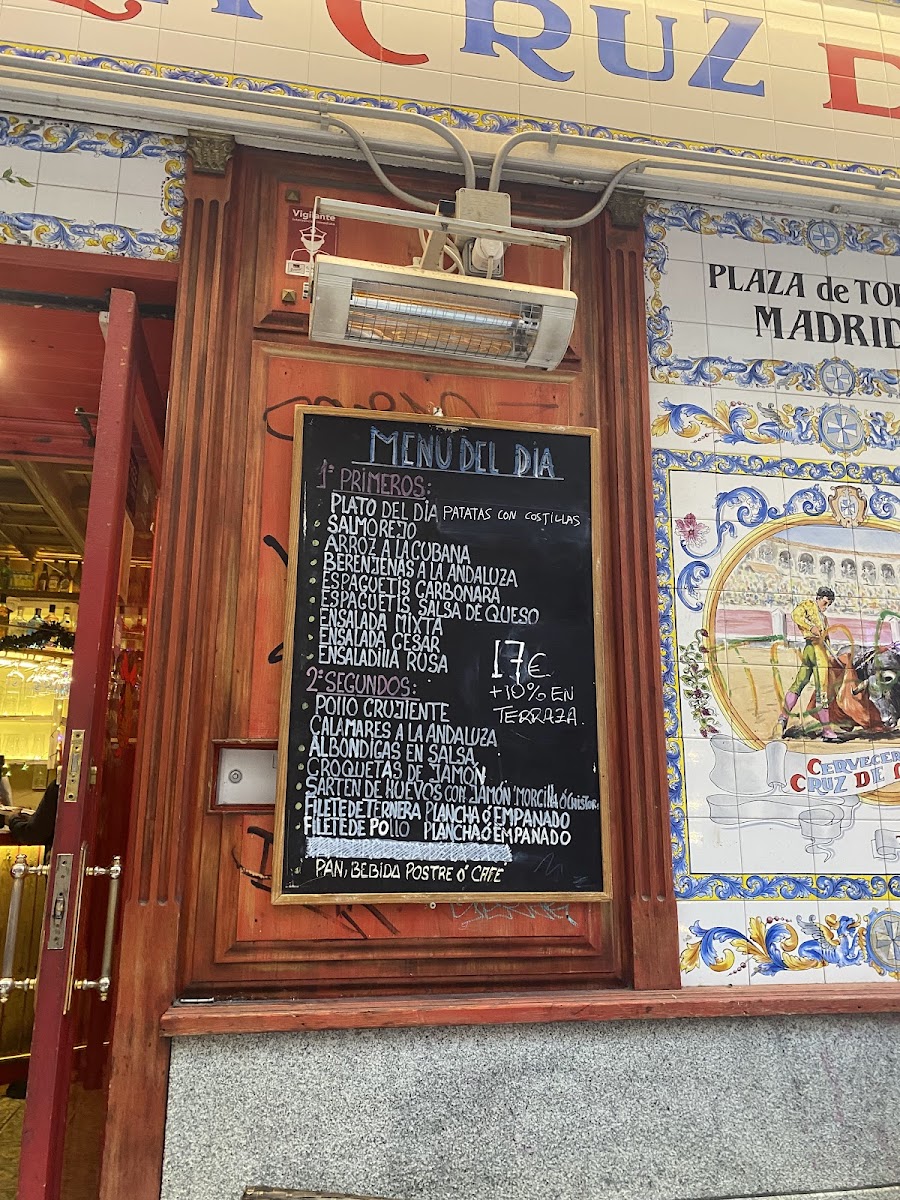 CRUZ D
Vigilante
PLAZA de TOR
MADRID
MENÚ DEL DÍA
1º PRIMEROS:
PLATO DEL DÍA PATATAS CON COSTILLAS
SALMOREJO
ARROZ A LA CUBANA
BERENJENAS A LA ANDALUZA
ESPAGUETIS CARBONARA
ESPAGUETIS SALSA DE QUESO
ENSALADA MIXTA
ENSALADA CESAR
ENSALADILLA RUSA
17€
+10% EN
TERRAZA.
2º SEGUNDOS:
POLLO CRUJIENTE
CALAMARES A LA ANDALUZA
ALBONDIGAS EN SALSA
CROQUETAS DE JAMÓN
SARTEN DE HUEVOS CON JAMÓN MORCILLA Ó CHISTOR.
FILETE DE TERNERA PLANCHA Ó EMPANADO
FILETE DE POLLO PLANCHA Ó EMPANADO
PAN, BEBIDA POSTRE Ó CAFE
CERVECER
CRUZ DE